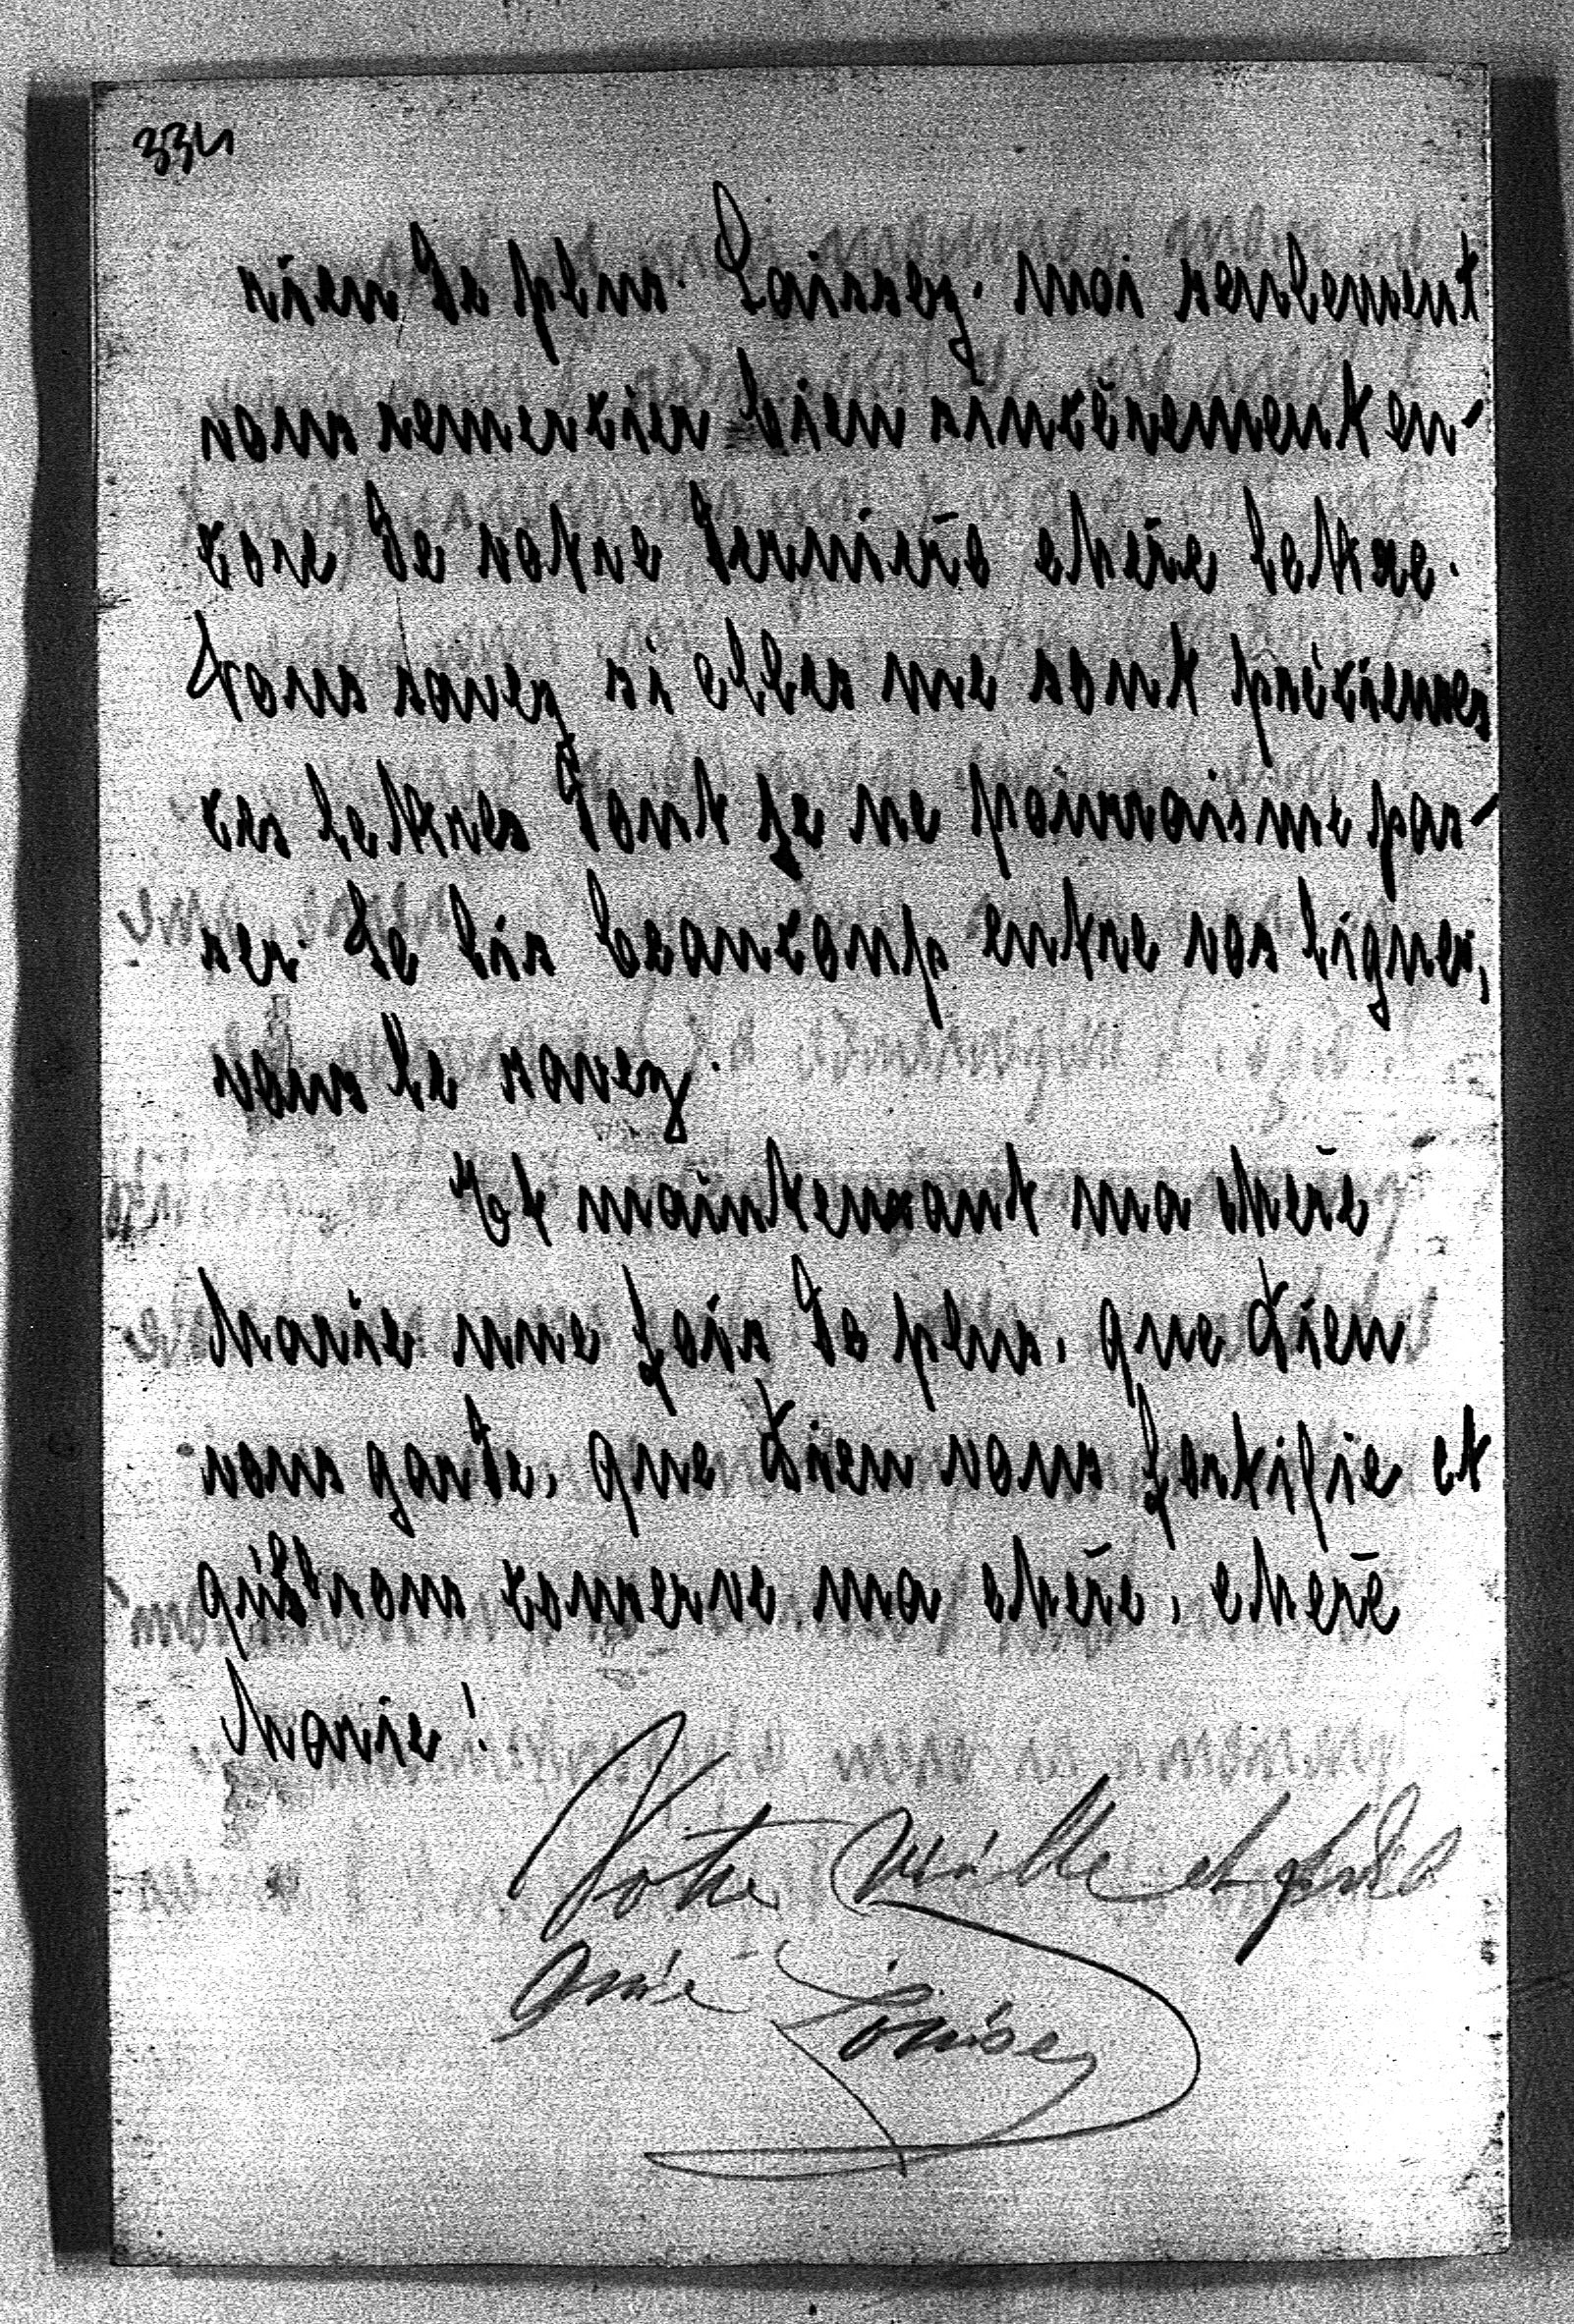 334
rien de plus. Laissez-moi seulement
vous remercier bien sincèrement en-
core de votre dernière chère lettre.
Vous savez si elles me sont précieuses
ces lettres dont je ne pourrais me pas-
ser. Je lis beaucoup entre vos lignes,
vous le savez.
Et maintenant ma chère
Marie une fois de plus, que Dieu
vous garde, que Dieu vous fortifie et
qu'il vous conserve ma chère, chère
Marie!
Votre vieille et fidèle
amie Louise